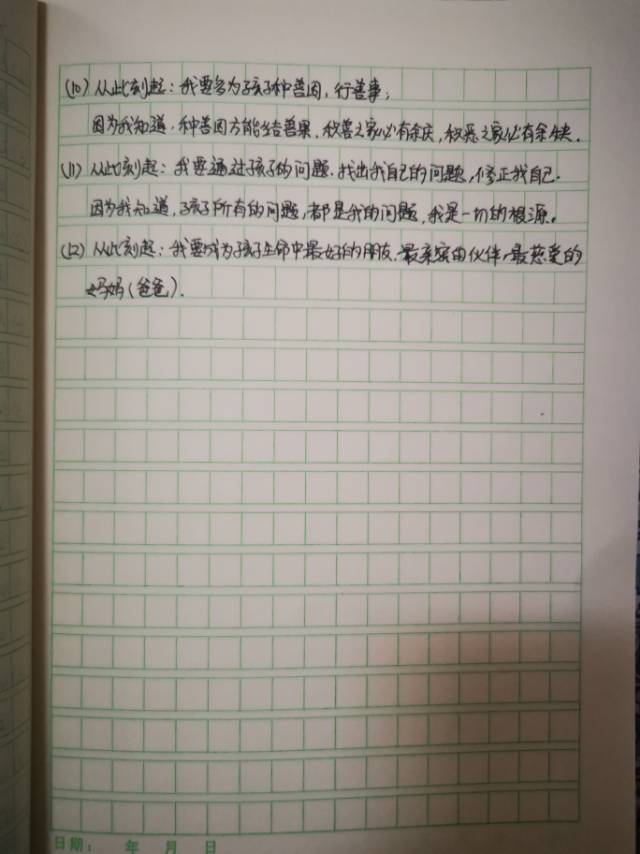 (10) 从此刻起：我要多为孩子种善因，行善事；
因为我知道，种善因方能结善果，积善之家必有余庆，积恶之家必有余殃.
(11) 从此刻起：我要通过孩子的问题，找出我自己的问题，修正我自己.
因为我知道，孩子所有的问题，都是我的问题，我是一切的根源。
(12) 从此刻起：我要成为孩子生命中最好的朋友，最亲密的伙伴，最慈爱的
妈妈(爸爸).
日期： 年 月 日